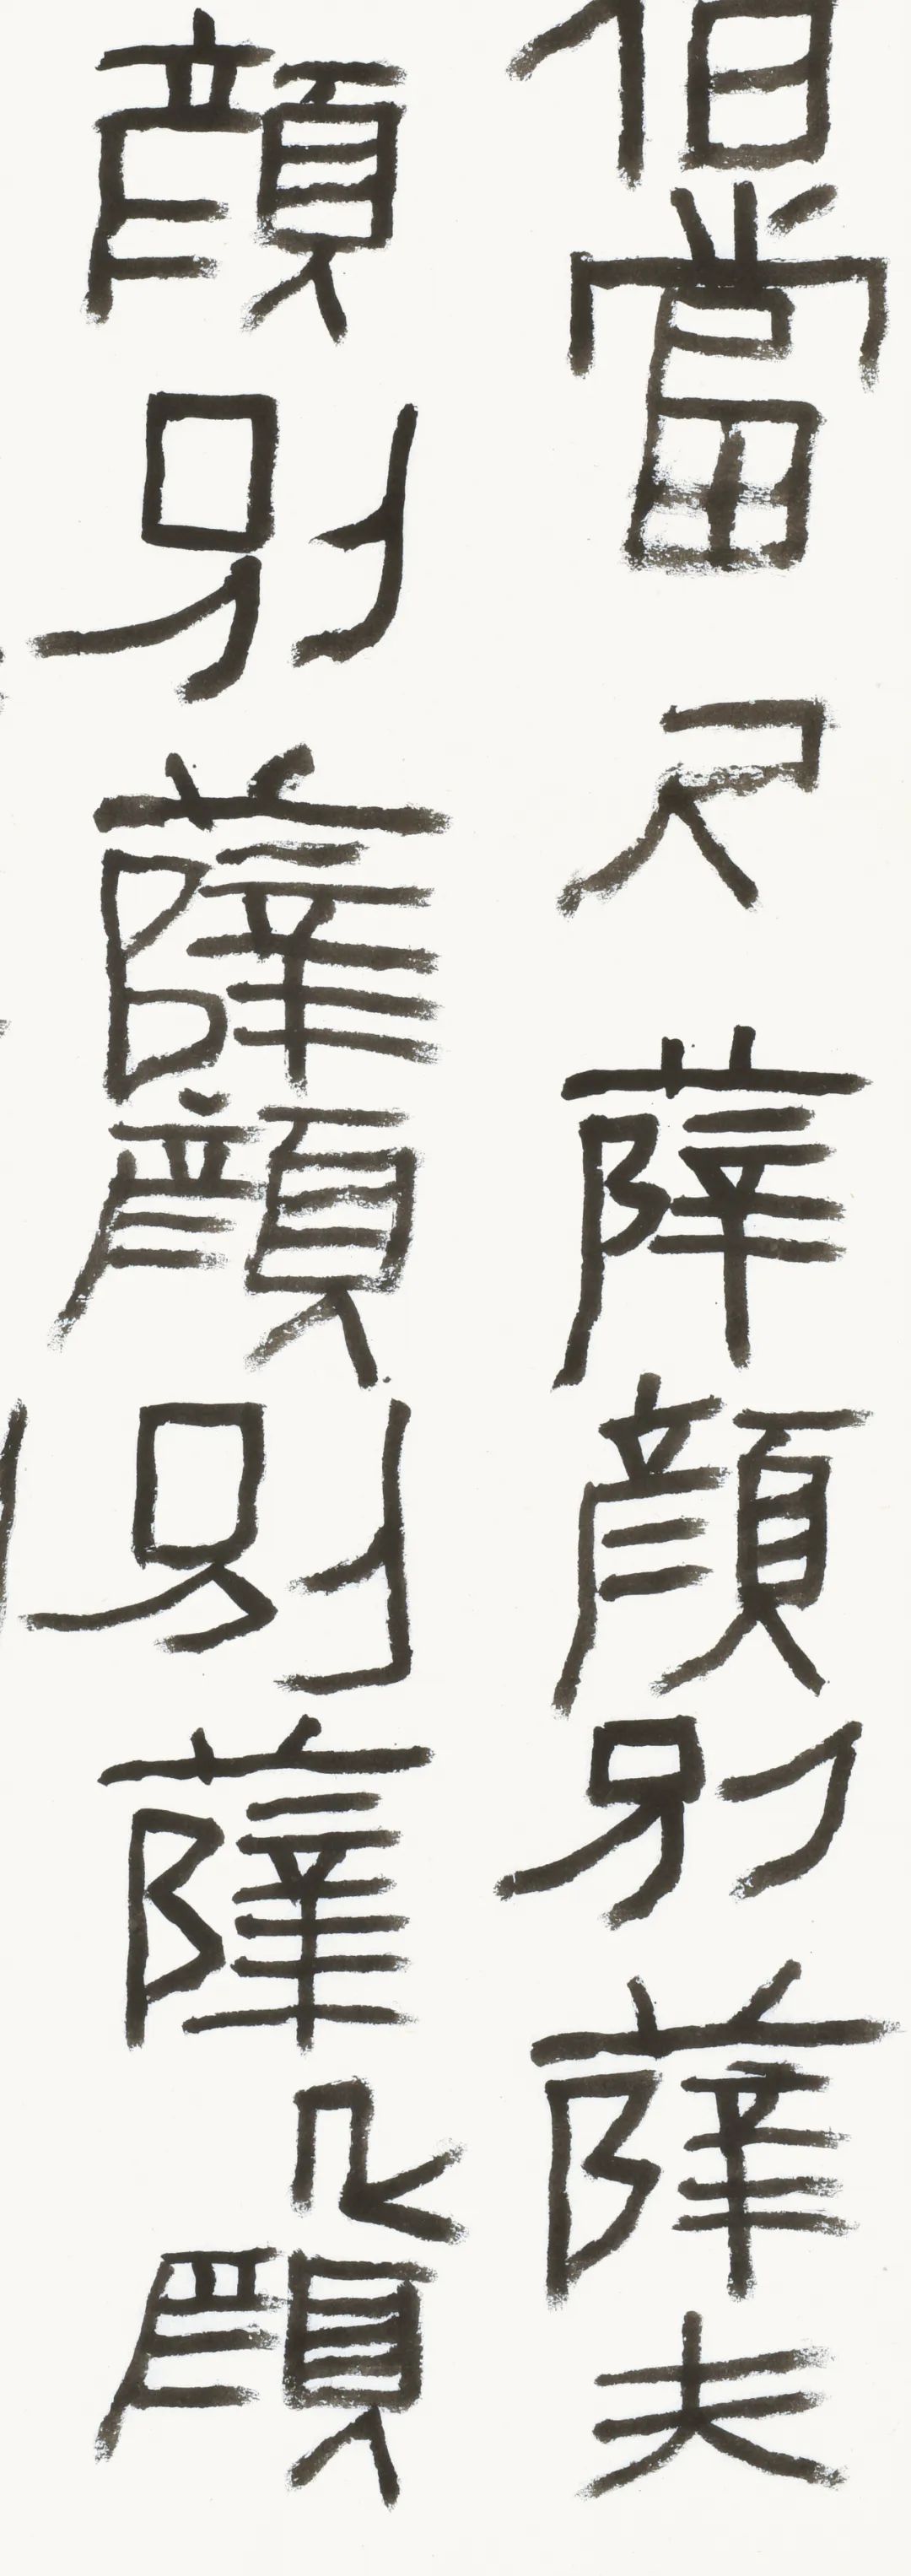 但當尺薛顔別薛夫
顔別薛顔別薛几顔